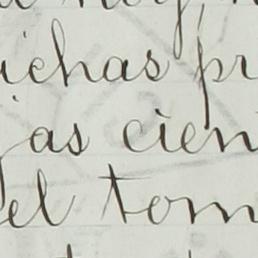 ichas pr
as cien
el tom